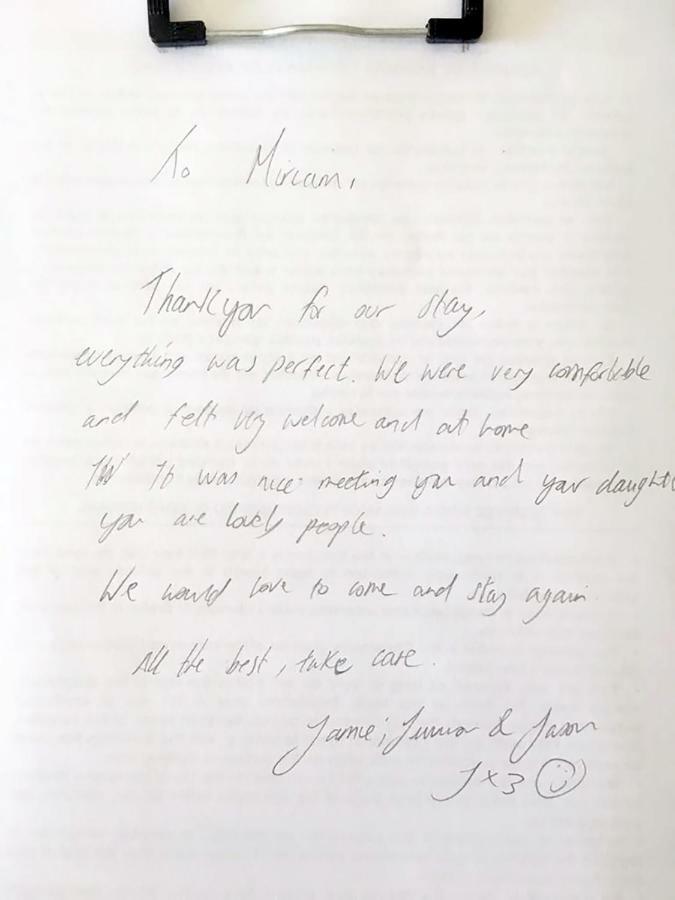 To Miriam,
Thank you for our stay,
everything was perfect. We were very comfortable
and felt very welcome and at home
It was nice meeting you and your daught
you are lovely people.
We would love to come and stay again.
All the best, take care.
Jamie, Junior & Jason
J x 3